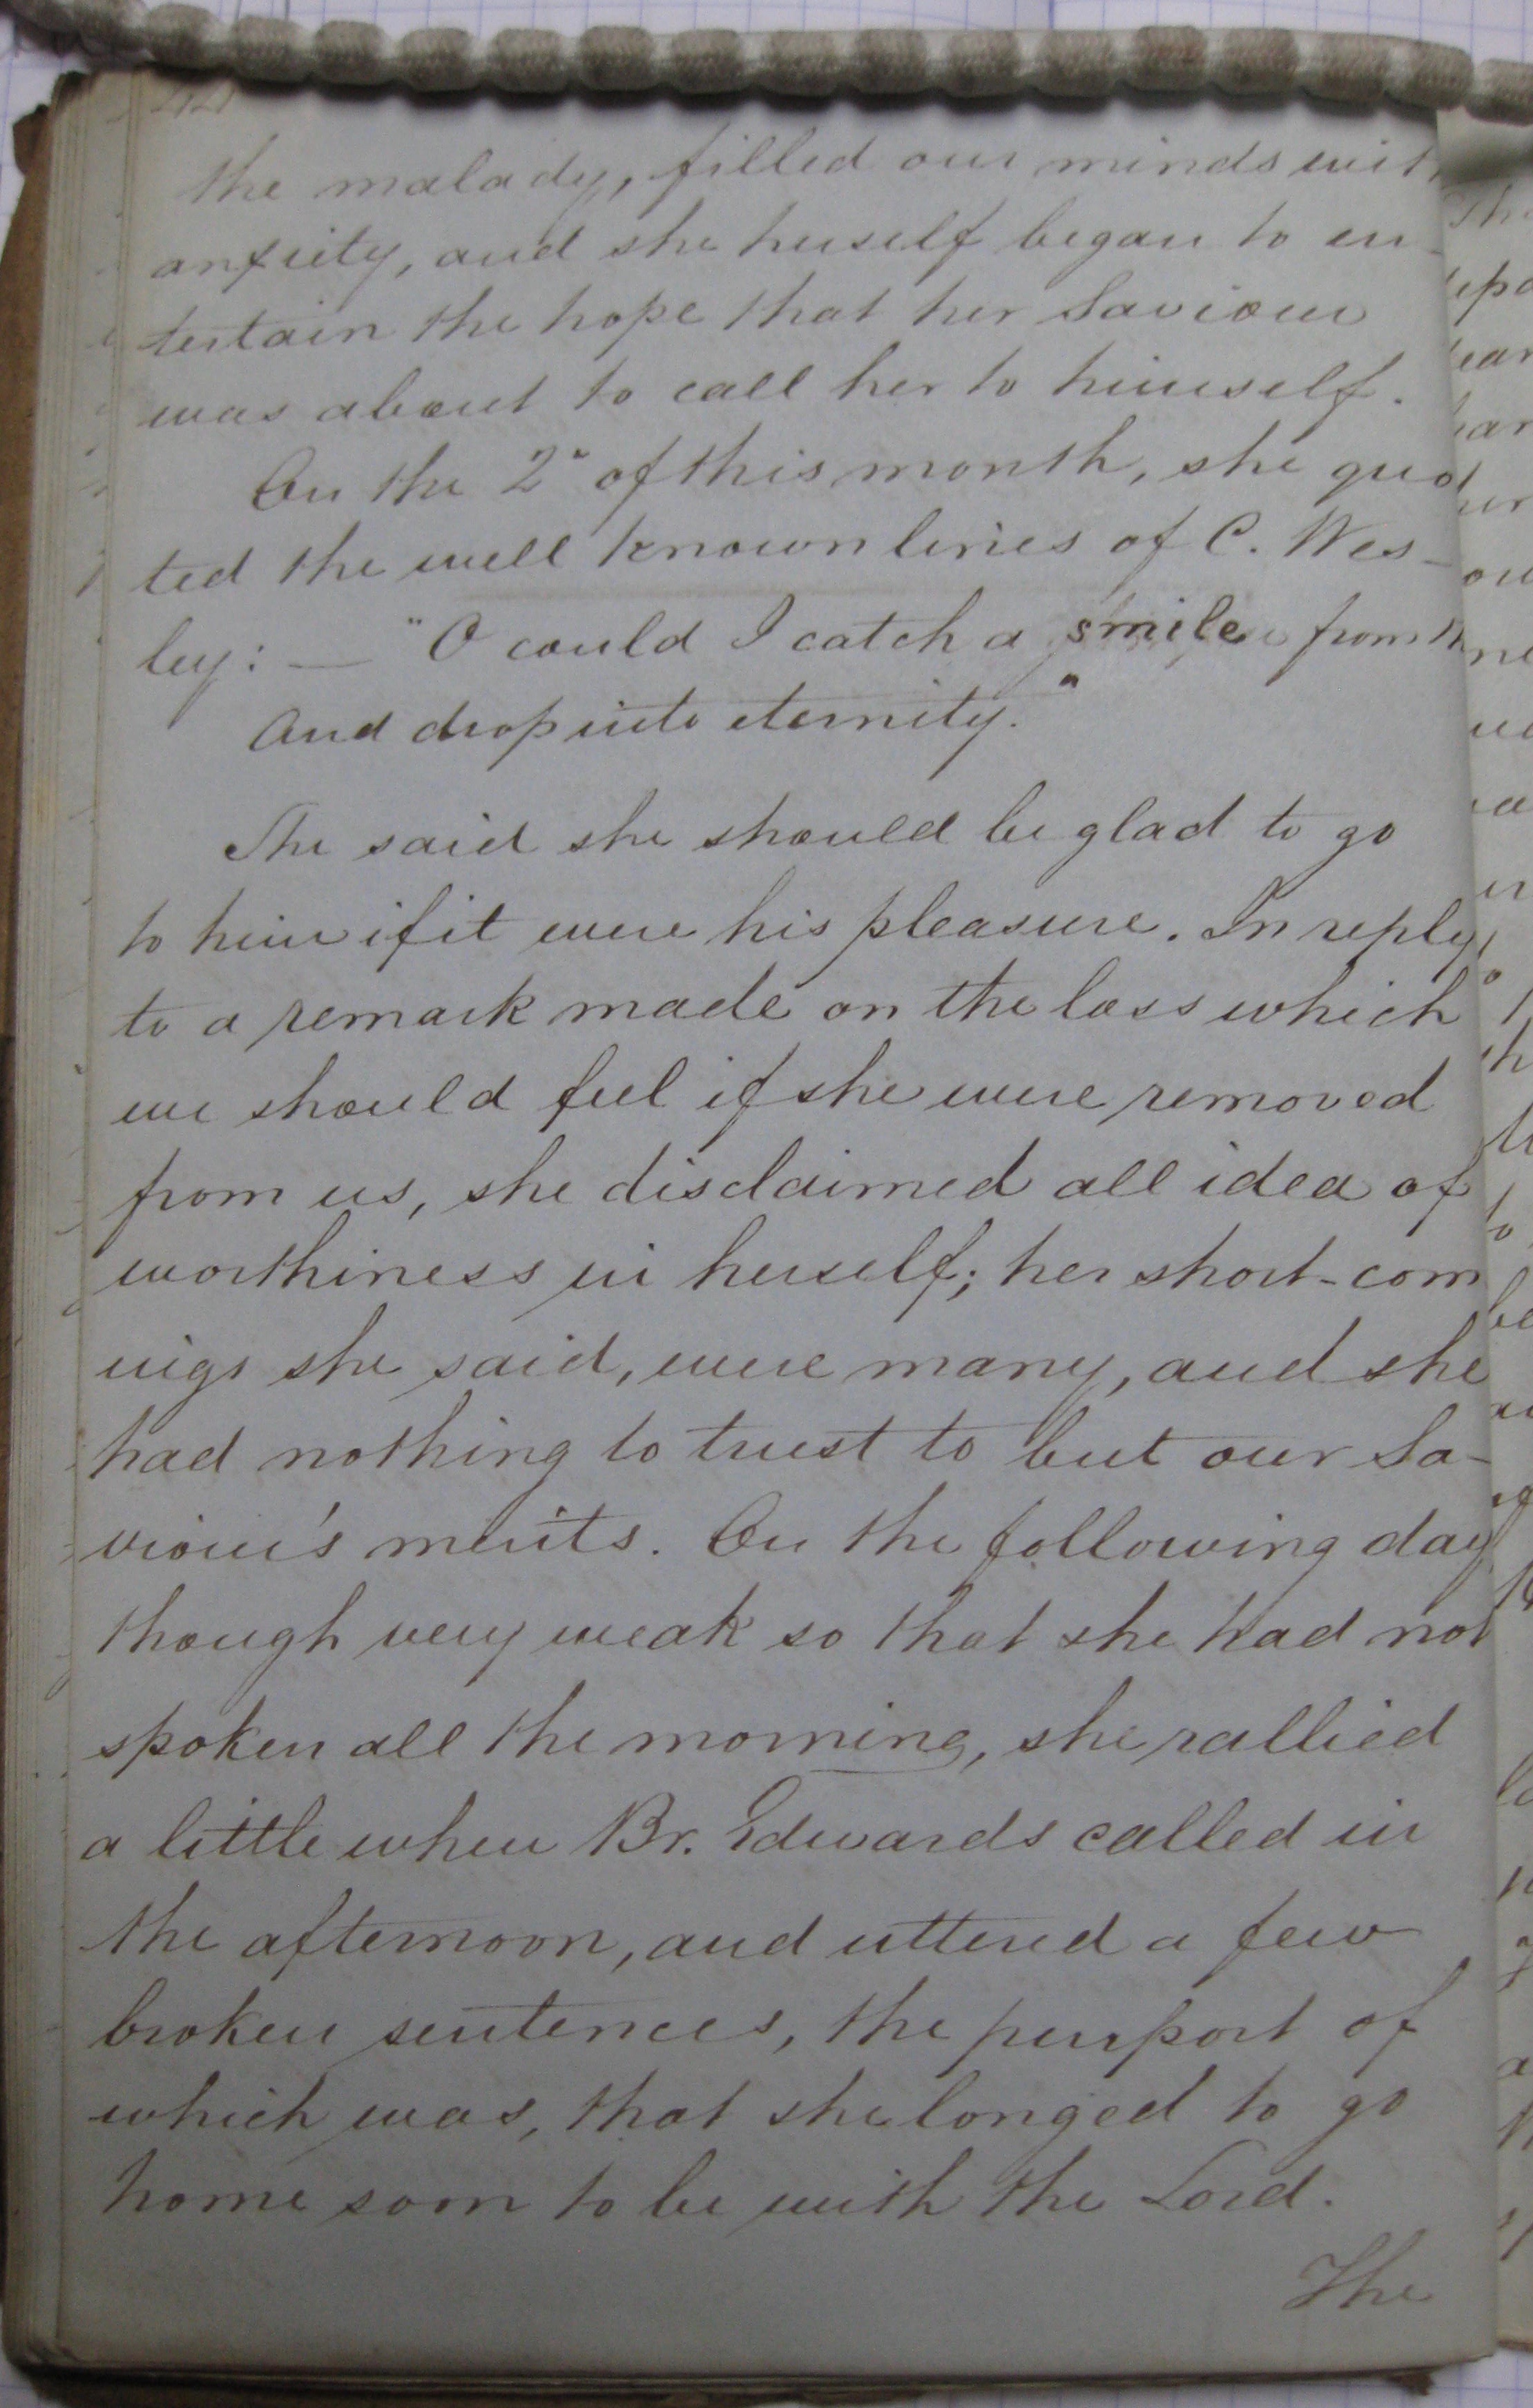 the malady, filled our minds with
anxiety, and she herself began to en-
tertain the hope that her Saviour
was about to call her to himself.
On the 2" of this month, she quo
ted the well known lines of C. Wes-
ley: — "O could I catch a smile from
And drop into eternity."
She said she should be glad to go
to him if it were his pleasure. In reply
to a remark made on the loss which
we should feel if she were removed
from us, she disclaimed all idea of
worthiness in herself; her short-com
ings she said, were many, and she
had nothing to trust to but our Sa-
viour's merits. On the following day
though very weak so that she had not
spoken all the morning, she rallied
a little when Br. Edwards called in
the afternoon, and uttered a few
broken sentences, the purport of
which was, that she longed to go
home soon to be with the Lord.
The